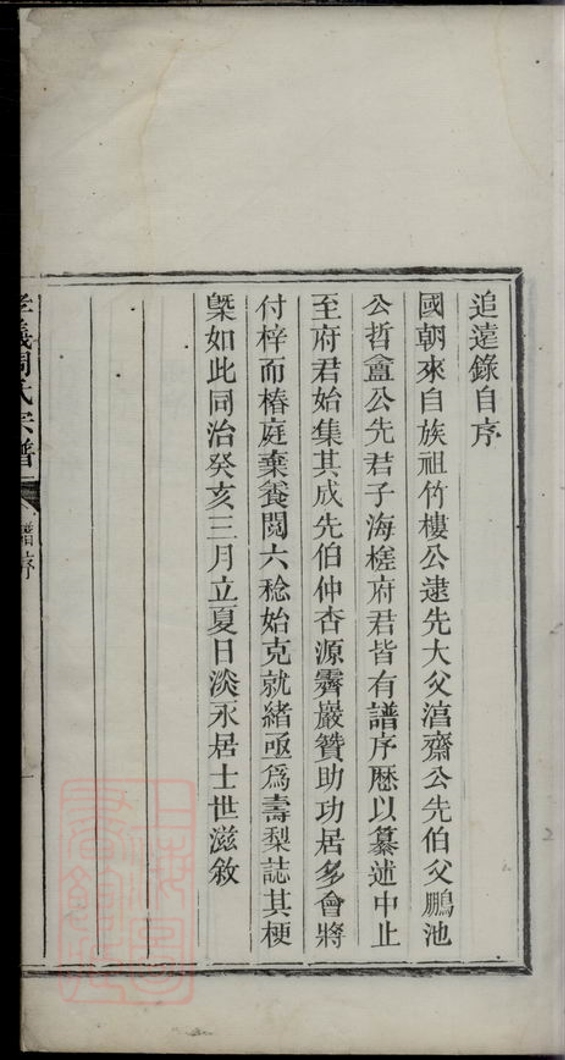 追遠錄自序
國朝來自族祖竹樓公逮先大父㵎齋公先伯父鵬池
公哲盦公先君子海槎府君皆有譜序歷以纂述中止
至府君始集其成先伯仲杏源霽巖贊助功居多會將
付梓而椿庭棄養閱六稔始克就緒亟爲壽梨誌其梗
槩如此同治癸亥三月立夏日淡永居士世滋敘
孝義周氏宗譜
譜序
一